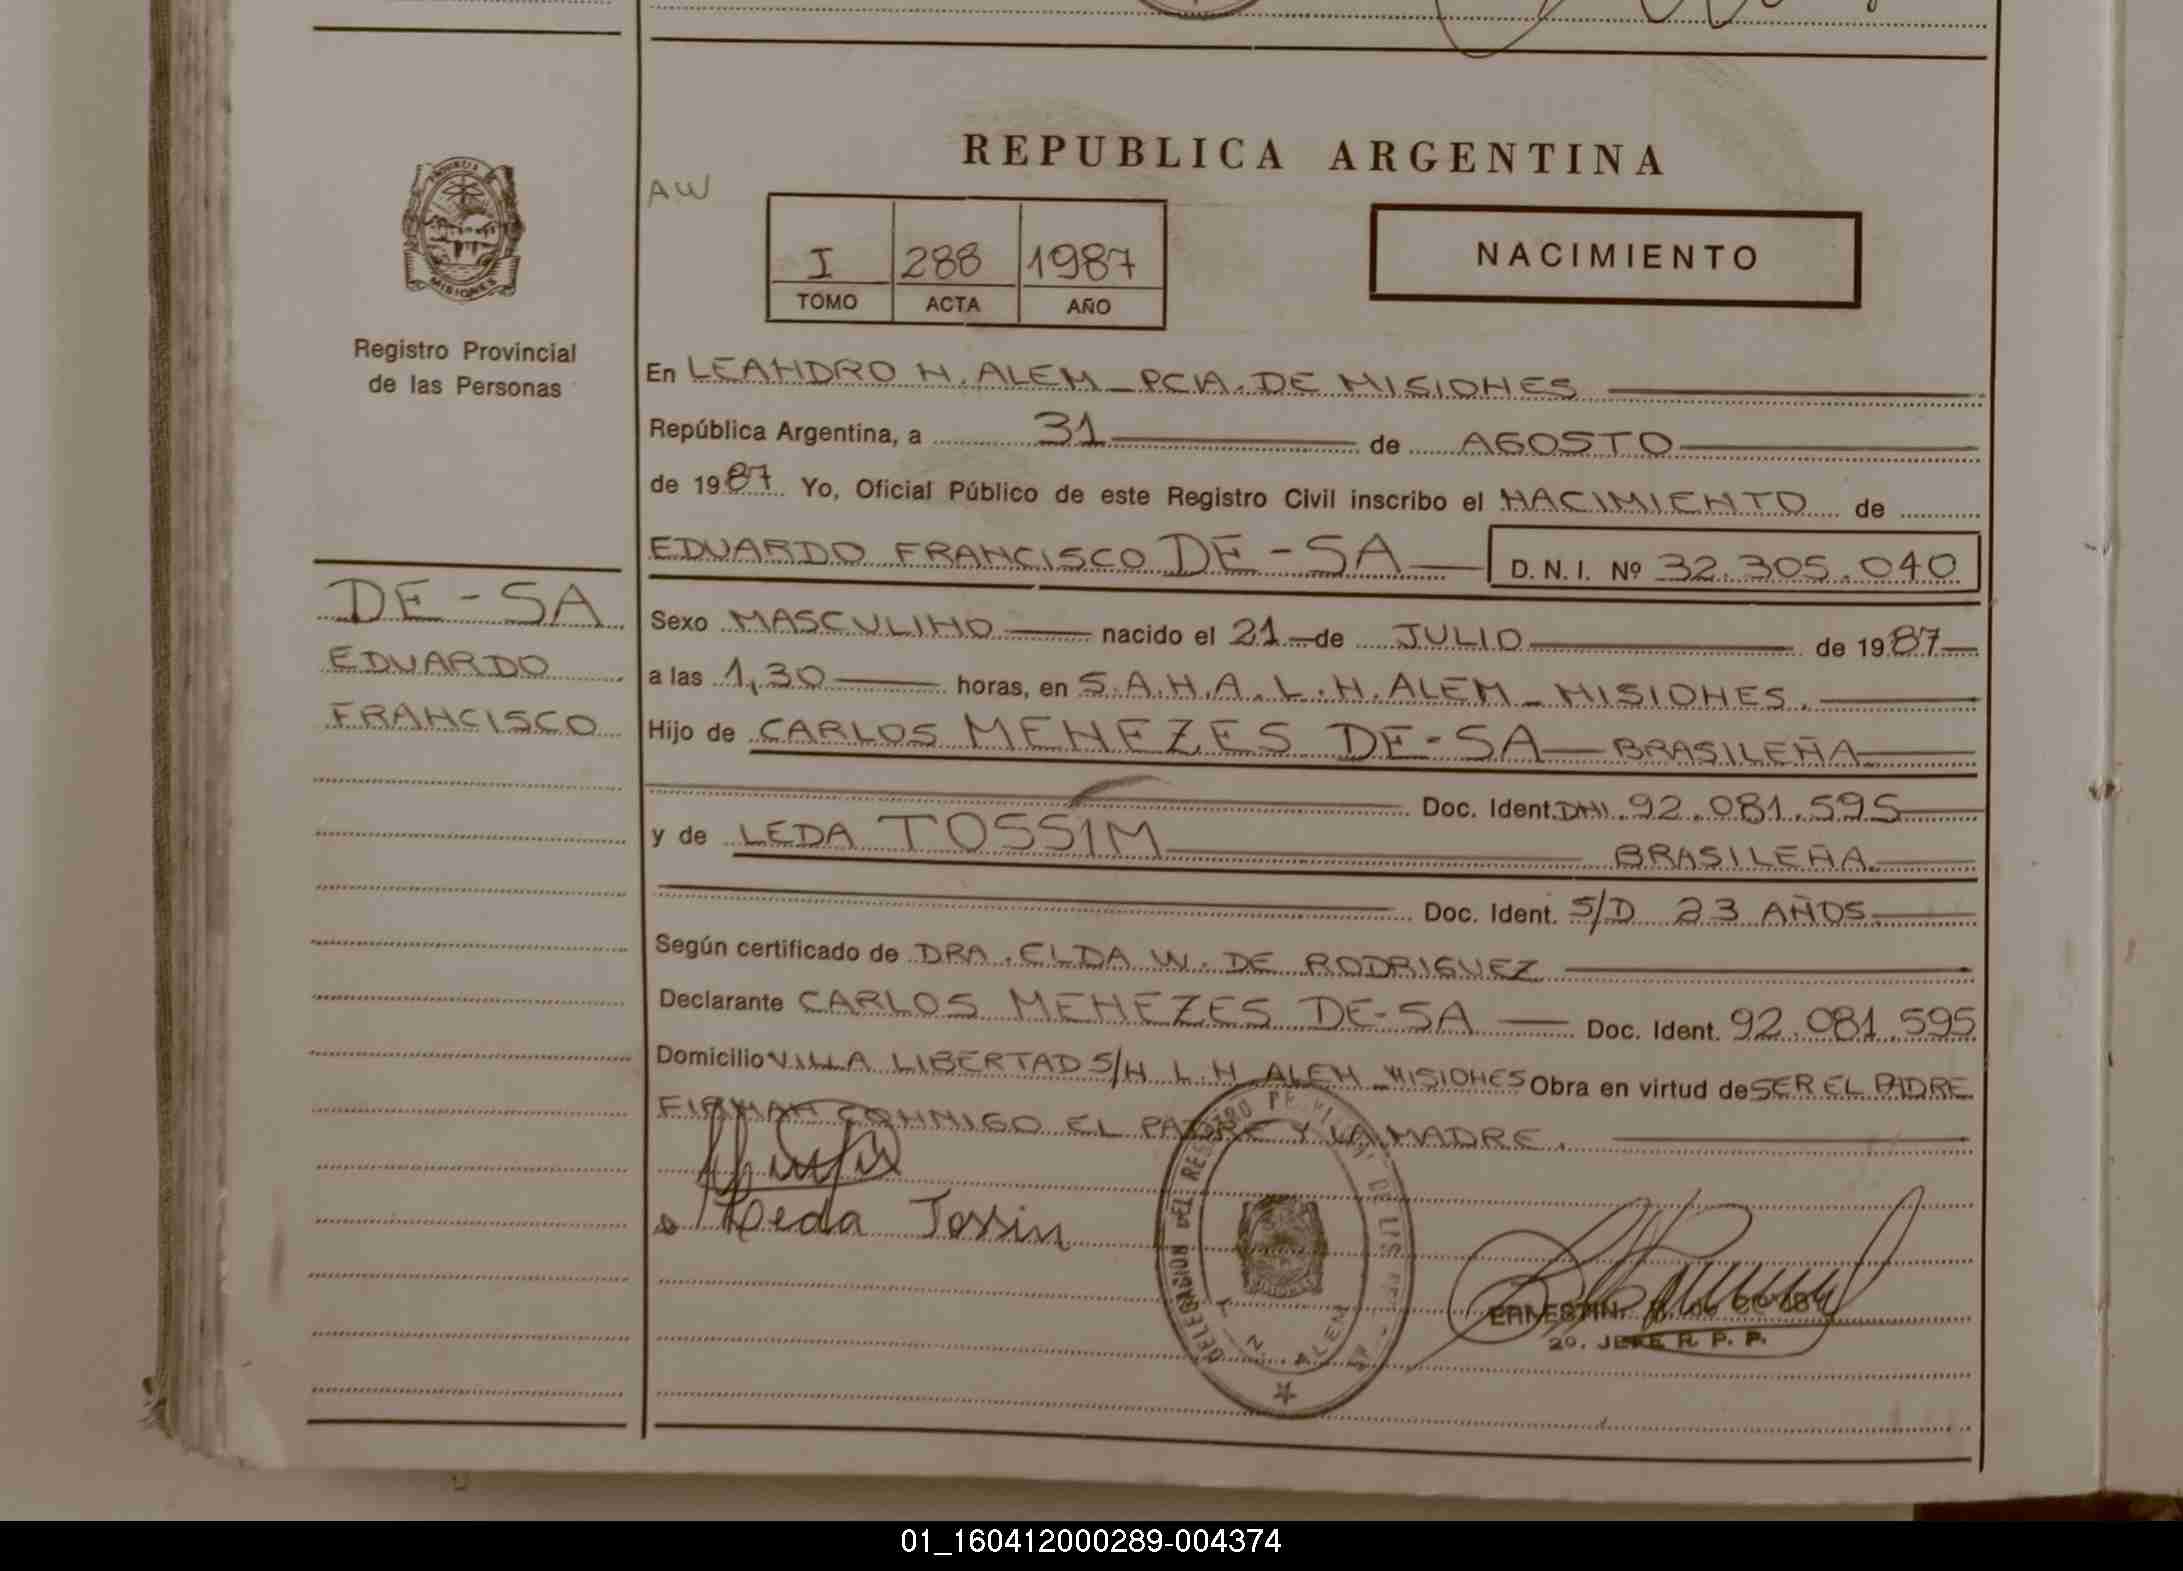 REPUBLICA ARGENTINA
AW
I 288 1987
TOMO ACTA AÑO
NACIMIENTO
PROVINCIA
MISIONES
Registro Provincial
de las Personas
En LEANDRO N. ALEM - PCIA. DE MISIONES
República Argentina, a 31 de AGOSTO
de 1987 Yo, Oficial Público de este Registro Civil inscribo el NACIMIENTO de
EDUARDO FRANCISCO DE-SA D. N. I. Nº 32.305.040
DE-SA
EDUARDO
FRANCISCO
Sexo MASCULINO nacido el 21 de JULIO de 1987
a las 1,30 horas, en S.A.H.A. L.N. ALEM - MISIONES.
Hijo de CARLOS MENEZES DE-SA BRASILEÑA
Doc. Ident. DNI. 92.081.595
y de LEDA TOSSIM BRASILEÑA.
Doc. Ident. S/D 23 AÑOS.
Según certificado de DRA. ELDA W. DE RODRIGUEZ
Declarante CARLOS MENEZES DE-SA Doc. Ident. 92.081.595
Domicilio VILLA LIBERTAD S/N L.N. ALEM - MISIONES Obra en virtud de SER EL PADRE
FIRMAN CONMIGO EL PADRE Y LA MADRE.
Leda Tossin
DELEGACION DEL REGISTRO
L. N. ALEM
2º. JEFE R. P. P.
01_160412000289-004374